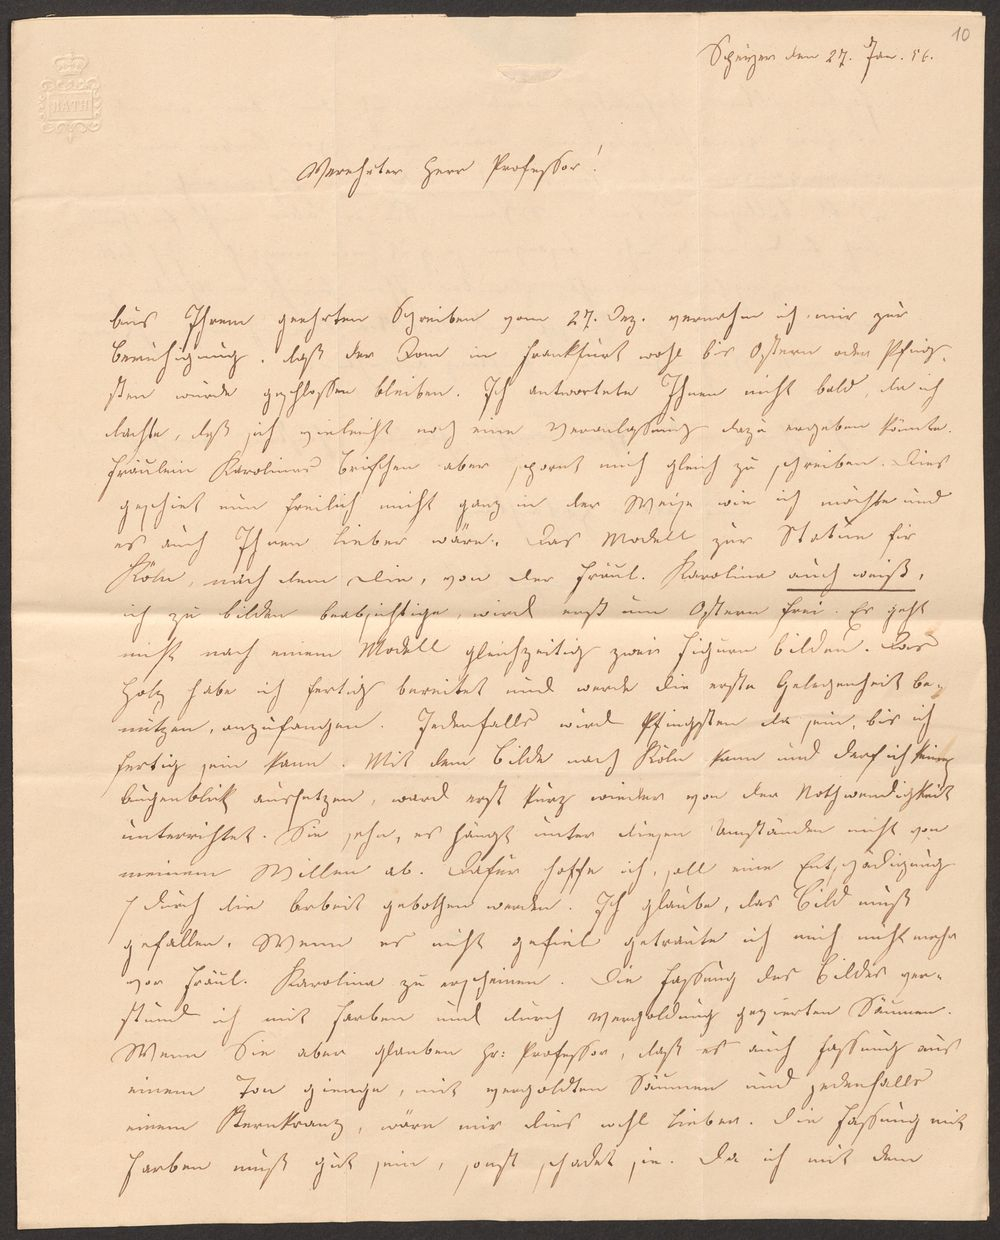 10
Speyer den 27. Jan. 56.
BATH
Verehrter Herr Professor!
Aus Ihrem geehrten Schreiben vom 27. Dez. vernahm ich mir zur
Beruhigung, daß der Dom in Frankfurt wohl bis Ostern oder Pfing-
sten würde geschlossen bleiben. Ich antwortete Ihnen nicht bald, da ich
dachte, daß sich vieleicht noch eine Veranlassung dazu ergeben könnte.
Fräulein Karolinas Briefchen aber spornt mich gleich zu schreiben. Dies
geschiet nun freilich nicht ganz in der Weise wie ich möchte und
es auch Ihnen lieber wäre. Das Modell zur Statue für
Köln, nach dem die, von der Fräul. Karolina auch weiß,
ich zu bilden beabsichtige, wird erst um Ostern frei. Es geht
nicht nach einem Modell gleichzeitig zwei Figuren bilden. Das
Holz habe ich fertig bereitet und werde die erste Gelegenheit be-
nützen, anzufangen. Jedenfalls wird Pfingsten da sein, bis ich
fertig sein kann. Mit dem Bilde nach Köln kann und derf ich keinen
Augenblik aussetzen, ward erst kurz wieder von der Nothwendigkeit
unterrichtet. Sie sehn, es hängt unter diesen Umständen nicht von
meinem Willen ab. Dafür hoffe ich, soll eine Entschädigung
durch die Arbeit gebothen werden. Ich glaube, das Bild muß
gefallen. Wenn es nicht gefiel getraute ich mich nicht mehr
vor Fräul. Karolina zu erscheinen. Die Fassung des Bildes ver-
stund ich mit Farben und durch Vergoldung gezierten Säumen.
Wenn Sie aber glauben Hr: Professor, daß es auch Fassung aus
einem Ton gienge, mit vergoldten Säumen und jedenfalls
einem Sternkranz, wäre mir dies wohl lieber. Die Fassung mit
Farben muß gut sein, sonst schadet sie. Da ich mit dem